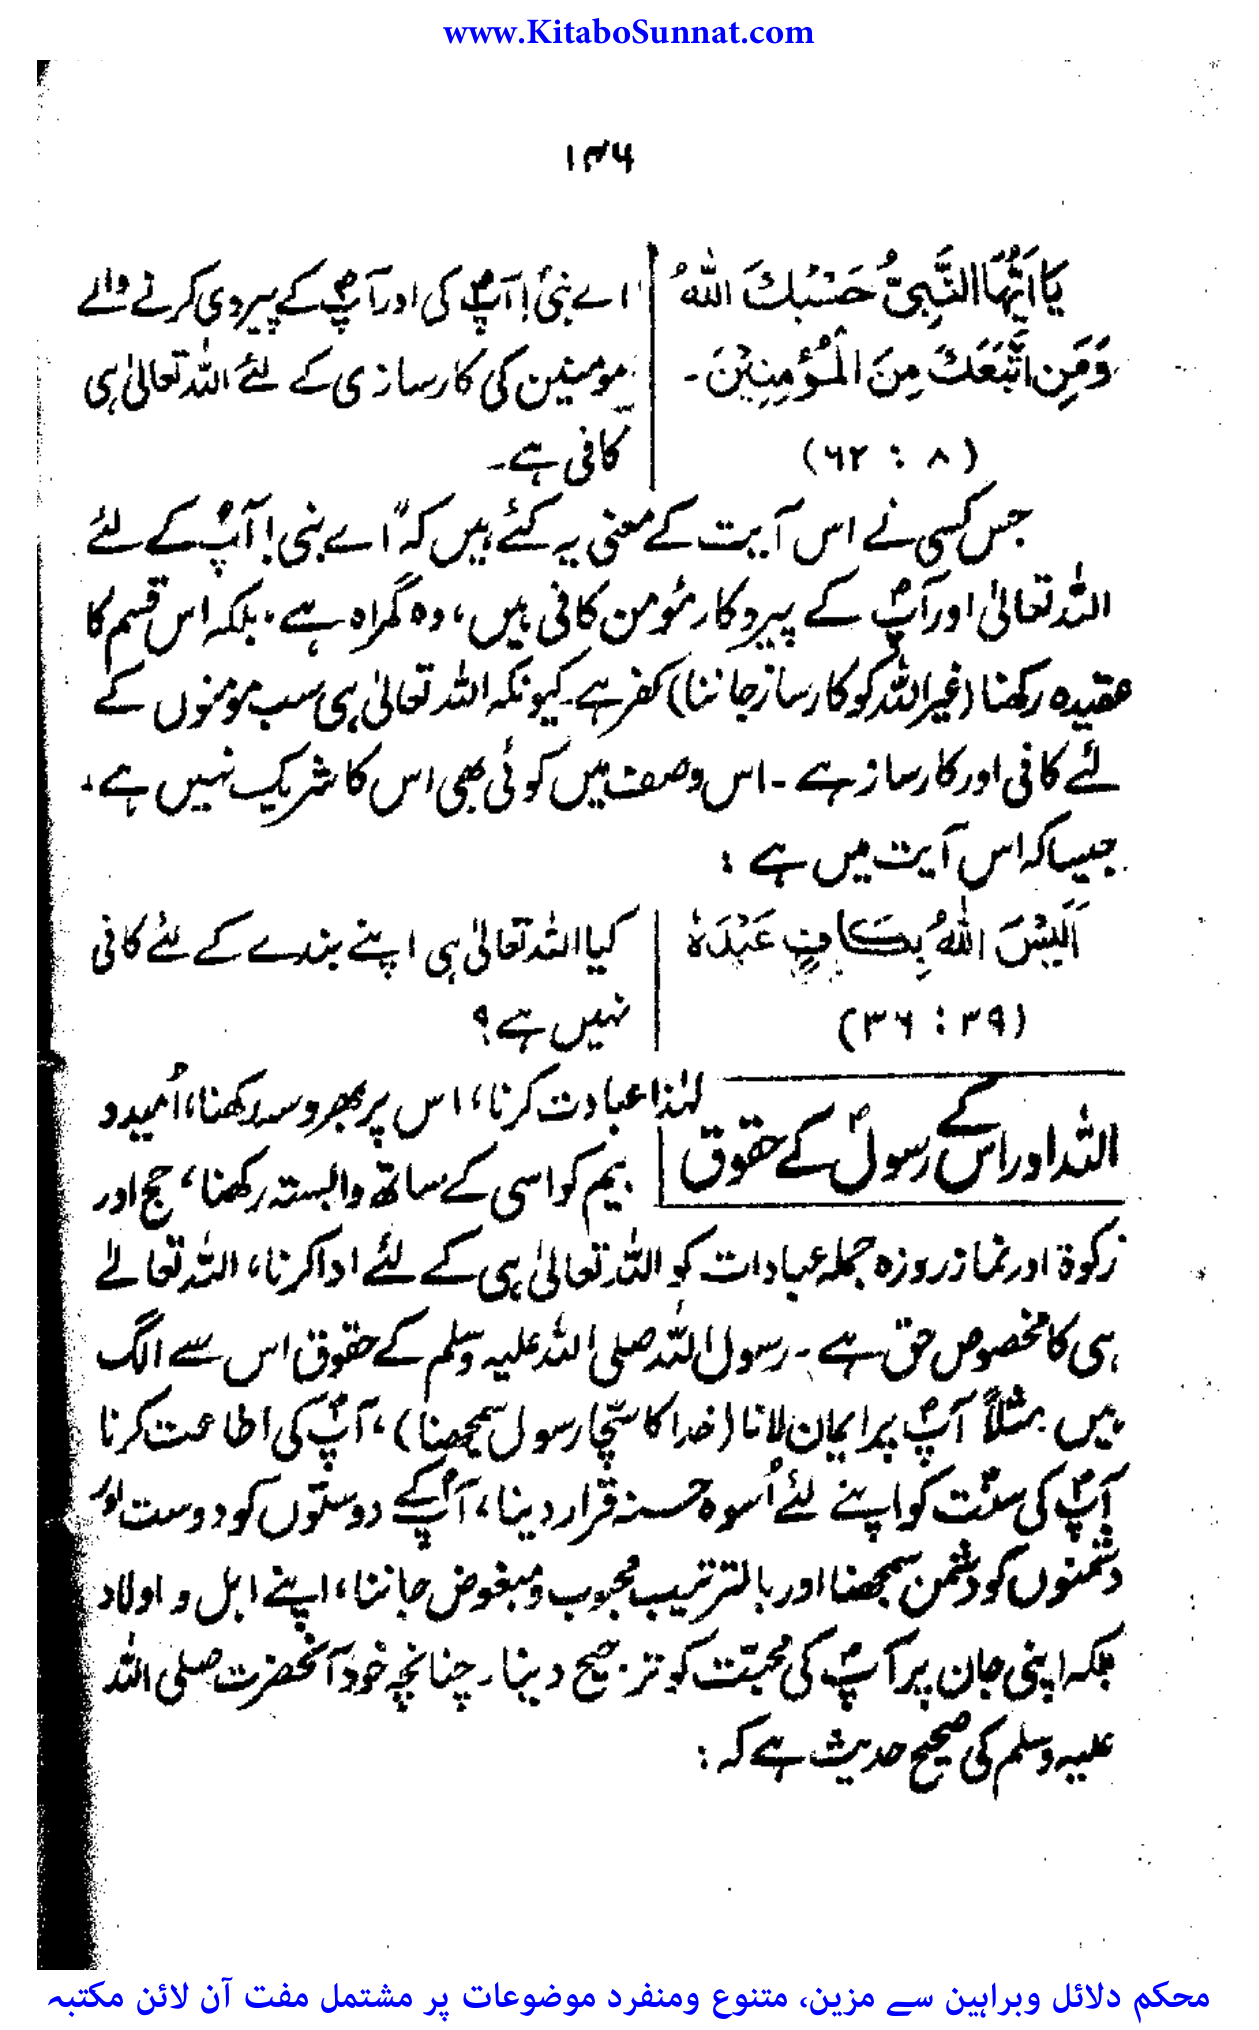 www.KitaboSunnat.com
۱۳۶
يٰاَيُّهَا النَّبِيُّ حَسْبُكَ اللهُ
وَمَنِ اتَّبَعَكَ مِنَ الْمُؤْمِنِيْنَ۔
(۸ : ۶۲)
اے نبیؐ! آپؐ کی اور آپؐ کے پیروی کرنے والے
مومنین کی کارسازی کے لئے اللہ تعالیٰ ہی
کافی ہے۔
جس کسی نے اس آیت کے معنی یہ کئے ہیں کہ "اے نبی! آپؐ کے لئے
اللہ تعالیٰ اور آپؐ کے پیروکار مؤمن کافی ہیں، وہ گمراہ ہے۔ بلکہ اس قسم کا
عقیدہ رکھنا (غیر اللہ کو کارساز جاننا) کفر ہے۔ کیونکہ اللہ تعالیٰ ہی سب مومنوں کے
لئے کافی اور کارساز ہے۔ اس وصف میں کوئی بھی اس کا شریک نہیں ہے،
جیسا کہ اس آیت میں ہے :
اَلَيْسَ اللهُ بِكَافٍ عَبْدَهٗ
(۳۹ : ۳۶)
کیا اللہ تعالیٰ ہی اپنے بندے کے لئے کافی
نہیں ہے؟
اللہ اور اس کے رسولؐ کے حقوق
لہٰذا عبادت کرنا، اس پر بھروسہ رکھنا، اُمید و
بیم کو اسی کے ساتھ وابستہ رکھنا، حج اور
زکوۃ اور نماز روزہ جملہ عبادات کو اللہ تعالیٰ ہی کے لئے ادا کرنا، اللہ تعالےٰ
ہی کا مخصوص حق ہے۔ رسول اللہ صلی اللہ علیہ وسلم کے حقوق اس سے الگ
ہیں مثلاً آپؐ پر ایمان لانا (خدا کا سچّا رسول سمجھنا)، آپؐ کی اطاعت کرنا
آپؐ کی سنّت کو اپنے لئے اُسوہ حسنہ قرار دینا، آپؐ کے دوستوں کو دوست اور
دشمنوں کو دشمن سمجھنا اور بالترتیب محبوب و مبغوض جاننا، اپنے اہل و اولاد
بلکہ اپنی جان پر آپؐ کی محبّت کو ترجیح دینا۔ چنانچہ خود آنحضرت صلی اللہ
علیہ وسلم کی صحیح حدیث ہے کہ :
محکم دلائل وبراہین سے مزین، متنوع ومنفرد موضوعات پر مشتمل مفت آن لائن مکتبہ